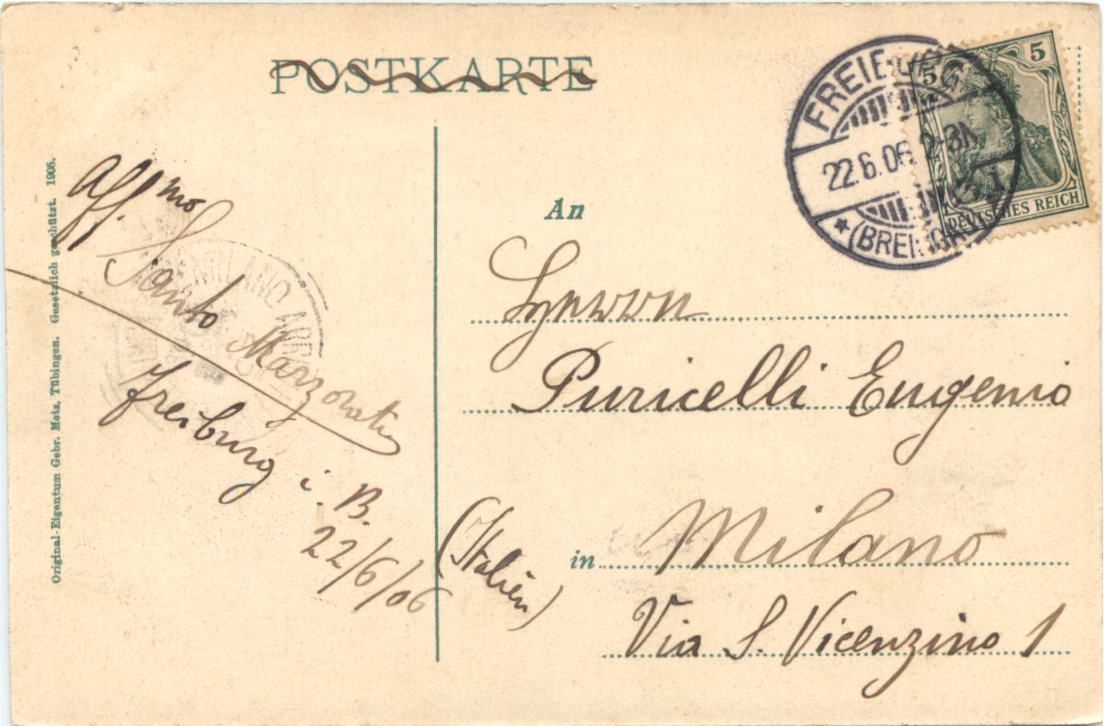 POSTKARTE
FREIBURG
22.6.06. 2-3N.
* (BREISGAU)
5 5
DEUTSCHES REICH
An
Herrn
Puricelli Eugenio
in Milano
(Italien)
Via S. Vicenzino 1
Aff.mo
Santo Marzorati
Freiburg i. B.
22/6/06
MILANO ARR
Original-Eigentum Gebr. Metz, Tübingen. Gesetzlich geschützt. 1905.